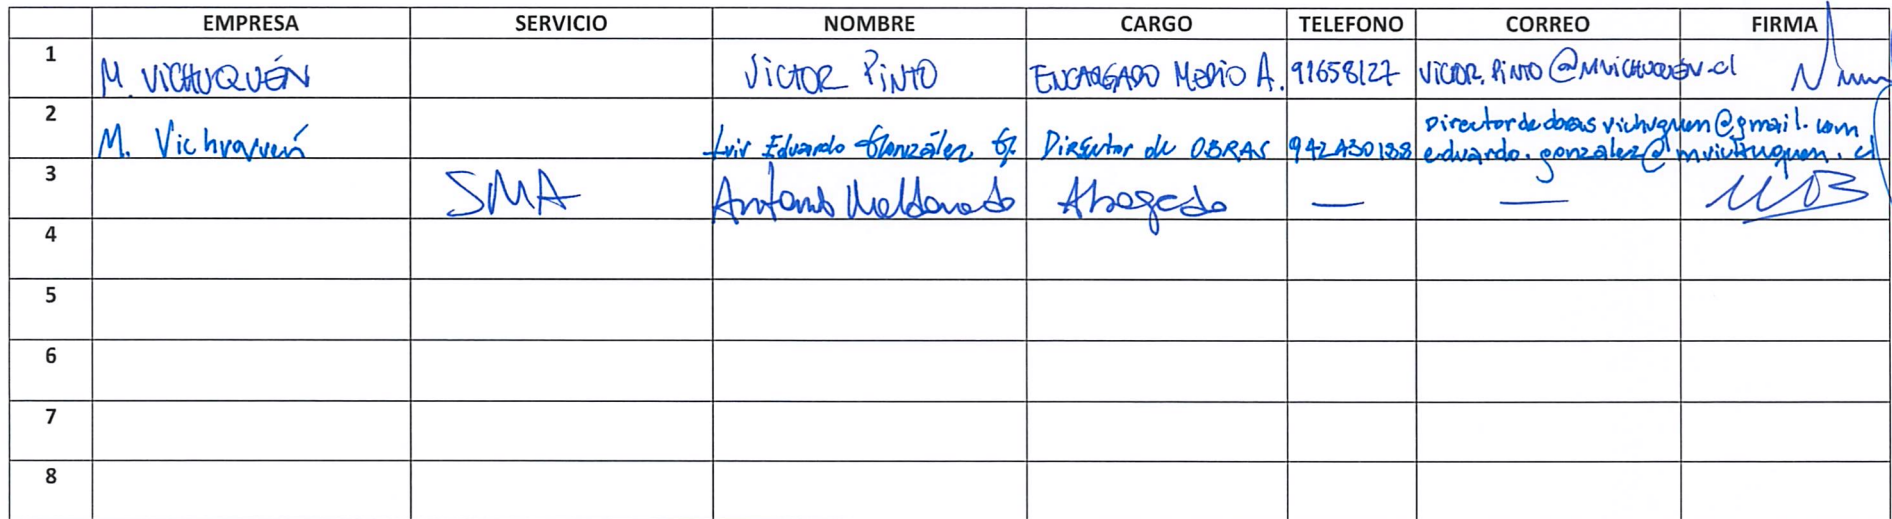 EMPRESA SERVICIO NOMBRE CARGO TELEFONO CORREO FIRMA
1 M. VICHUQUÉN VICTOR PINTO ENCARGADO MEDIO A. 91658127 VICTOR.PINTO@MVICHUQUEN.cl
2 M. Vichuquén Luis Eduardo González G. Director de OBRAS Directordeobrasvichuquen@gmail.com
eduardo.gonzalez@mvichuquen.cl
3 SMA Antonio Maldonado Abogado — —
4
5
6
7
8